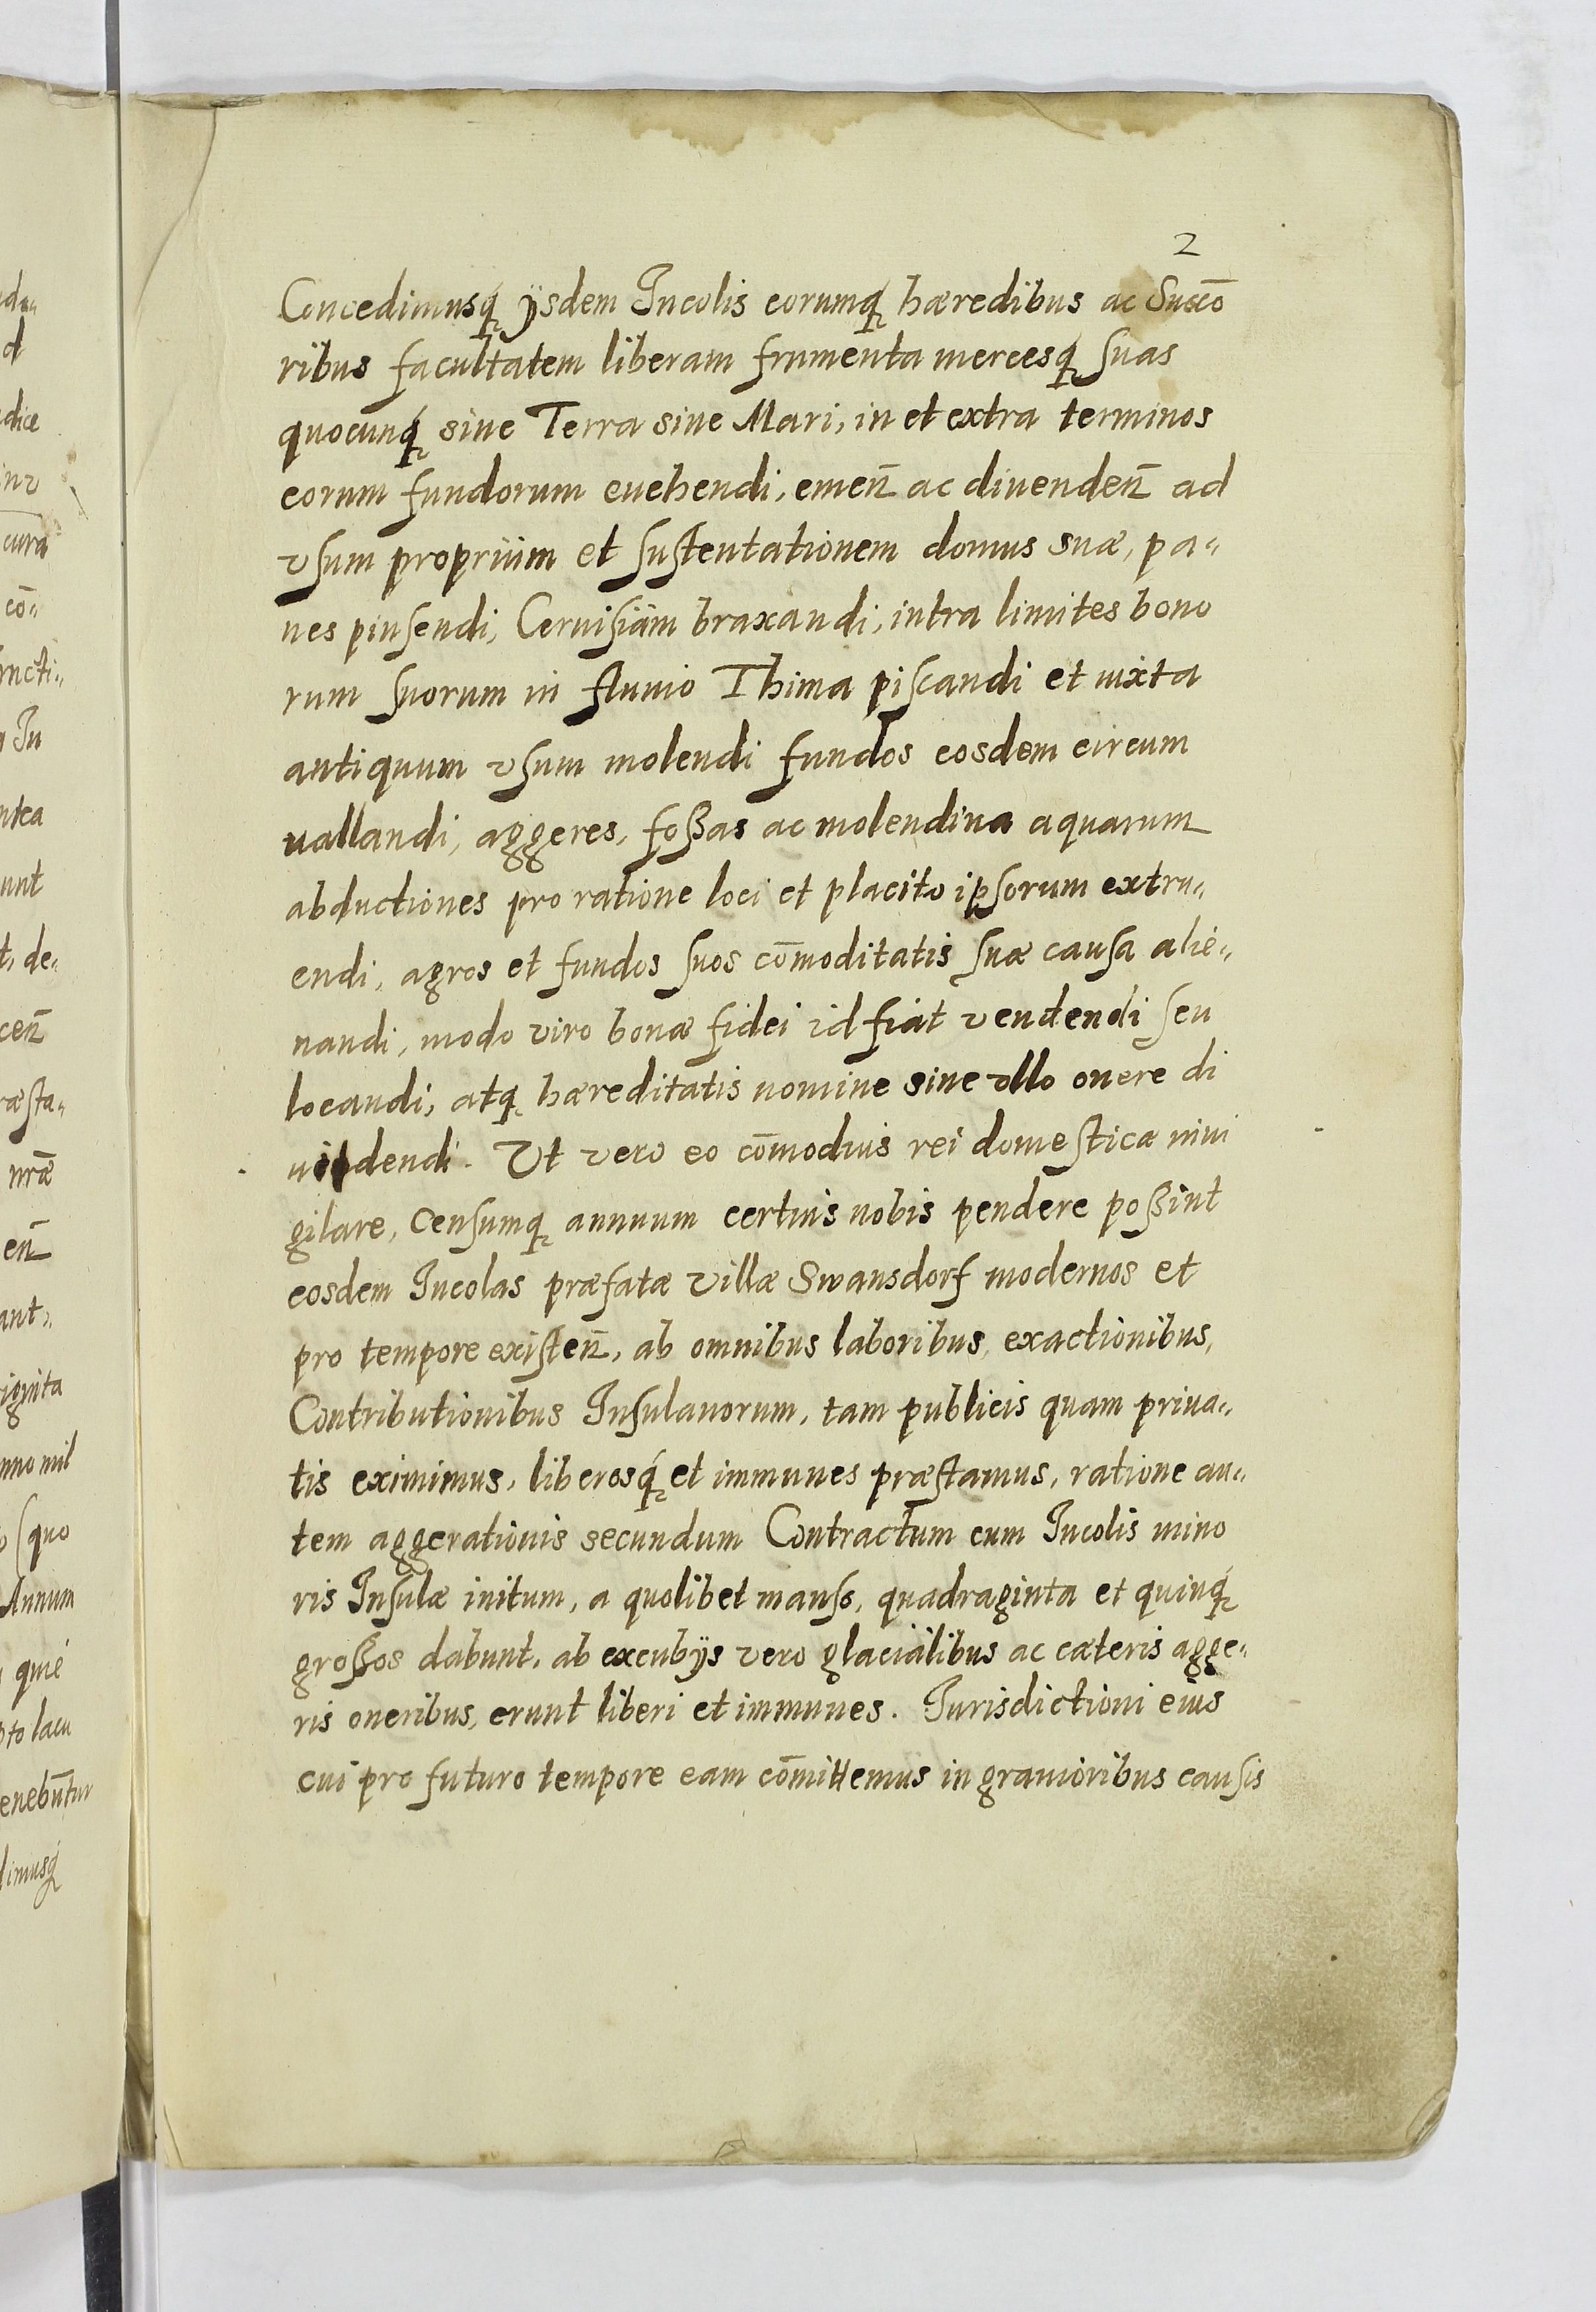 2
Concedimusq́ ijsdem Incolis eorumq́ hæredibus ac Succō
ribus facultatem liberam frumenta mercesq́ suas
quocunq́ siue Terra siue Mari, in et extra terminos
eorum fundorum euehendi, emen̄ ac diuenden̄ ad
vsum proprium et sustentationem domus suæ, pa„
nes pinsendi, Ceruisiam braxandi, intra limites bono
rum suorum in fluuio Thima piscandi et iuxta
antiquum vsum molendi fundos eosdem circum
uallandi, aggeres, foßas ac molendina aquarum
abductiones pro ratione loci et placito ipsorum extru„
endi, agros et fundos suos cōmoditatis suæ causa alie„
nandi, modo viro bonæ fidei id fiat vendendi seu
locandi, atq hæreditatis nomine sine vllo onere di
uidendi. Vt vero eo cōmodius rei domesticæ inui
gilare, Censumq annuum certius nobis pendere poßint
eosdem Incolas præfatæ villæ Swansdorf modernos et
pro tempore existen̄, ab omnibus laboribus, exactionibus,
Contributionibus Insulanorum, tam publicis quam priua„
tis eximimus, liberosq́ et immunes præstamus, ratione au„
tem aggerationis secundum Contractum cum Incolis mino
ris Insulæ initum, a quolibet manso, quadraginta et quinq́
großos dabunt, ab excubijs vero glacialibus ac cæteris agge„
ris oneribus, erunt liberi et immunes. Iurisdictioni eius
cui pro futuro tempore eam cōmittemus in grauioribus causis